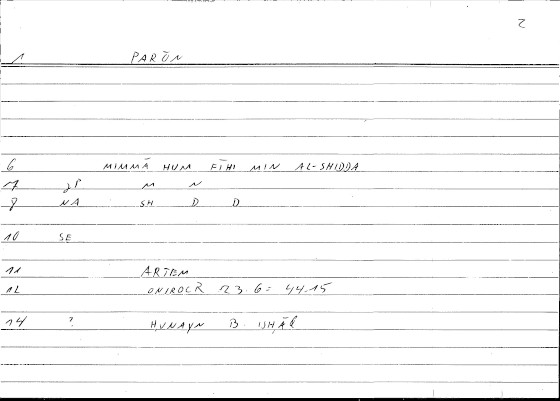 2
1 PARŌN
6 MIMMĀ HUM FĪHI MIN AL-SHIDDA
7 M N
8 NA SH D D
10 SE
11 ARTEM
12 ONIROCR 123.6 = 44.15
14 ? HUNAYN B. ISHĀQ